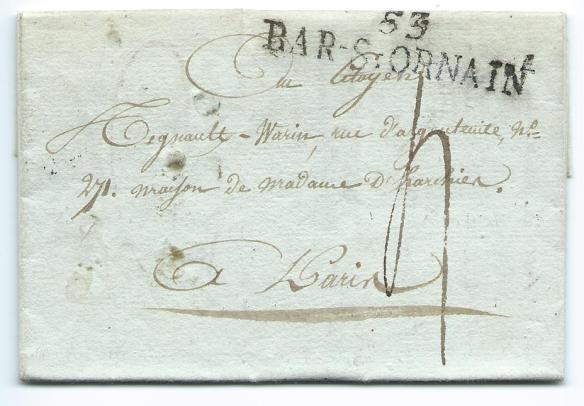 53
BAR-Sr ORNAIN
Au Citoyen
Regnault-Warin, rue d'argenteuile, No.
271. maison de madame
à Paris
4